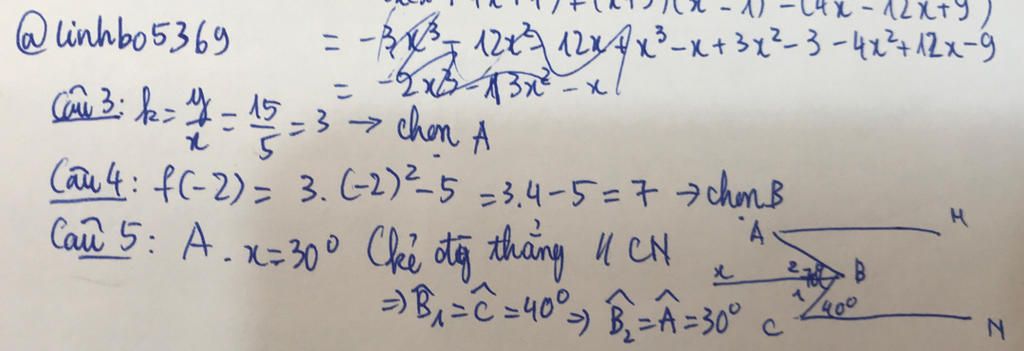 + (x+3)(x-1) - (4x - 12x+9)
@linhbo5369
= -3x³ - 12x² - 12x + x³ - x + 3x² - 3 - 4x² + 12x - 9
= -2x³ - 13x² - x
Câu 3: k = y/x = 15/5 = 3 → chọn A
Câu 4: f(-2) = 3.(-2)² - 5 = 3.4 - 5 = 7 → chọn B
Câu 5: A . x = 30° (kẻ đg thẳng // CN
⇒ B̂₁ = Ĉ = 40° ⇒ B̂₂ = Â = 30°
A M
x 2 70° B
1 40°
C N